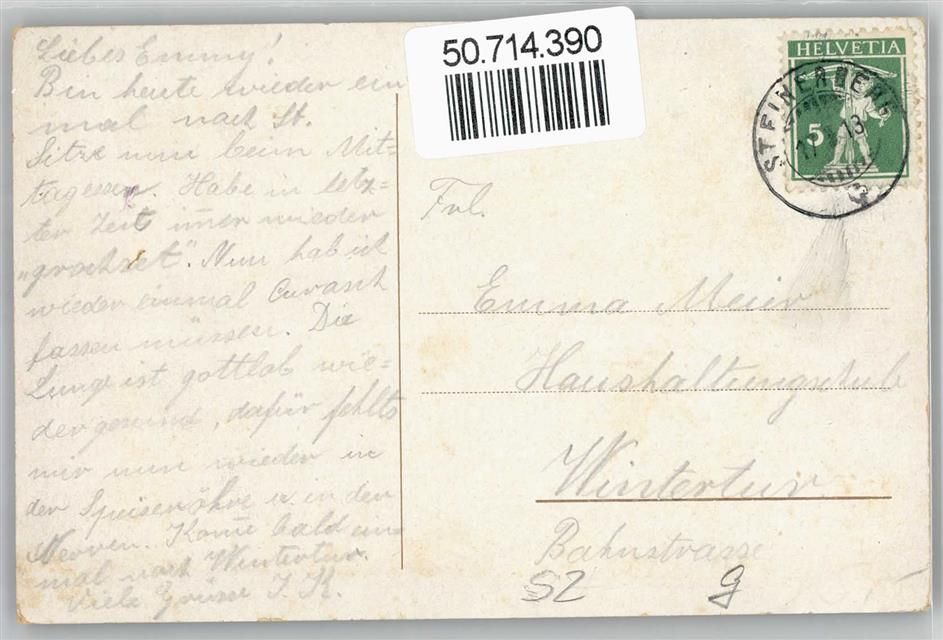 Liebes Emmy!
Bin heute wieder ein
mal nach St.
Sitze nun beim Mit=
tagessen. Habe in letz=
ter Zeit im̅er wieder
„grochset". Nun hab ich
wieder einmal Curasch
fassen müssen. Die
Lunge ist gottlob wie=
der gesund, dafür fehlts
mir nun wieder in
der Speiseröhre u. in den
Nerven. Kom̅e bald ein=
mal nach Wintertur.
Viele Grüsse J. K.
50.714.390
HELVETIA
5
STEINERBERG
13
Frl.
Emma Meier
Haushaltungschule
Wintertur
Bahnstrasse
SZ